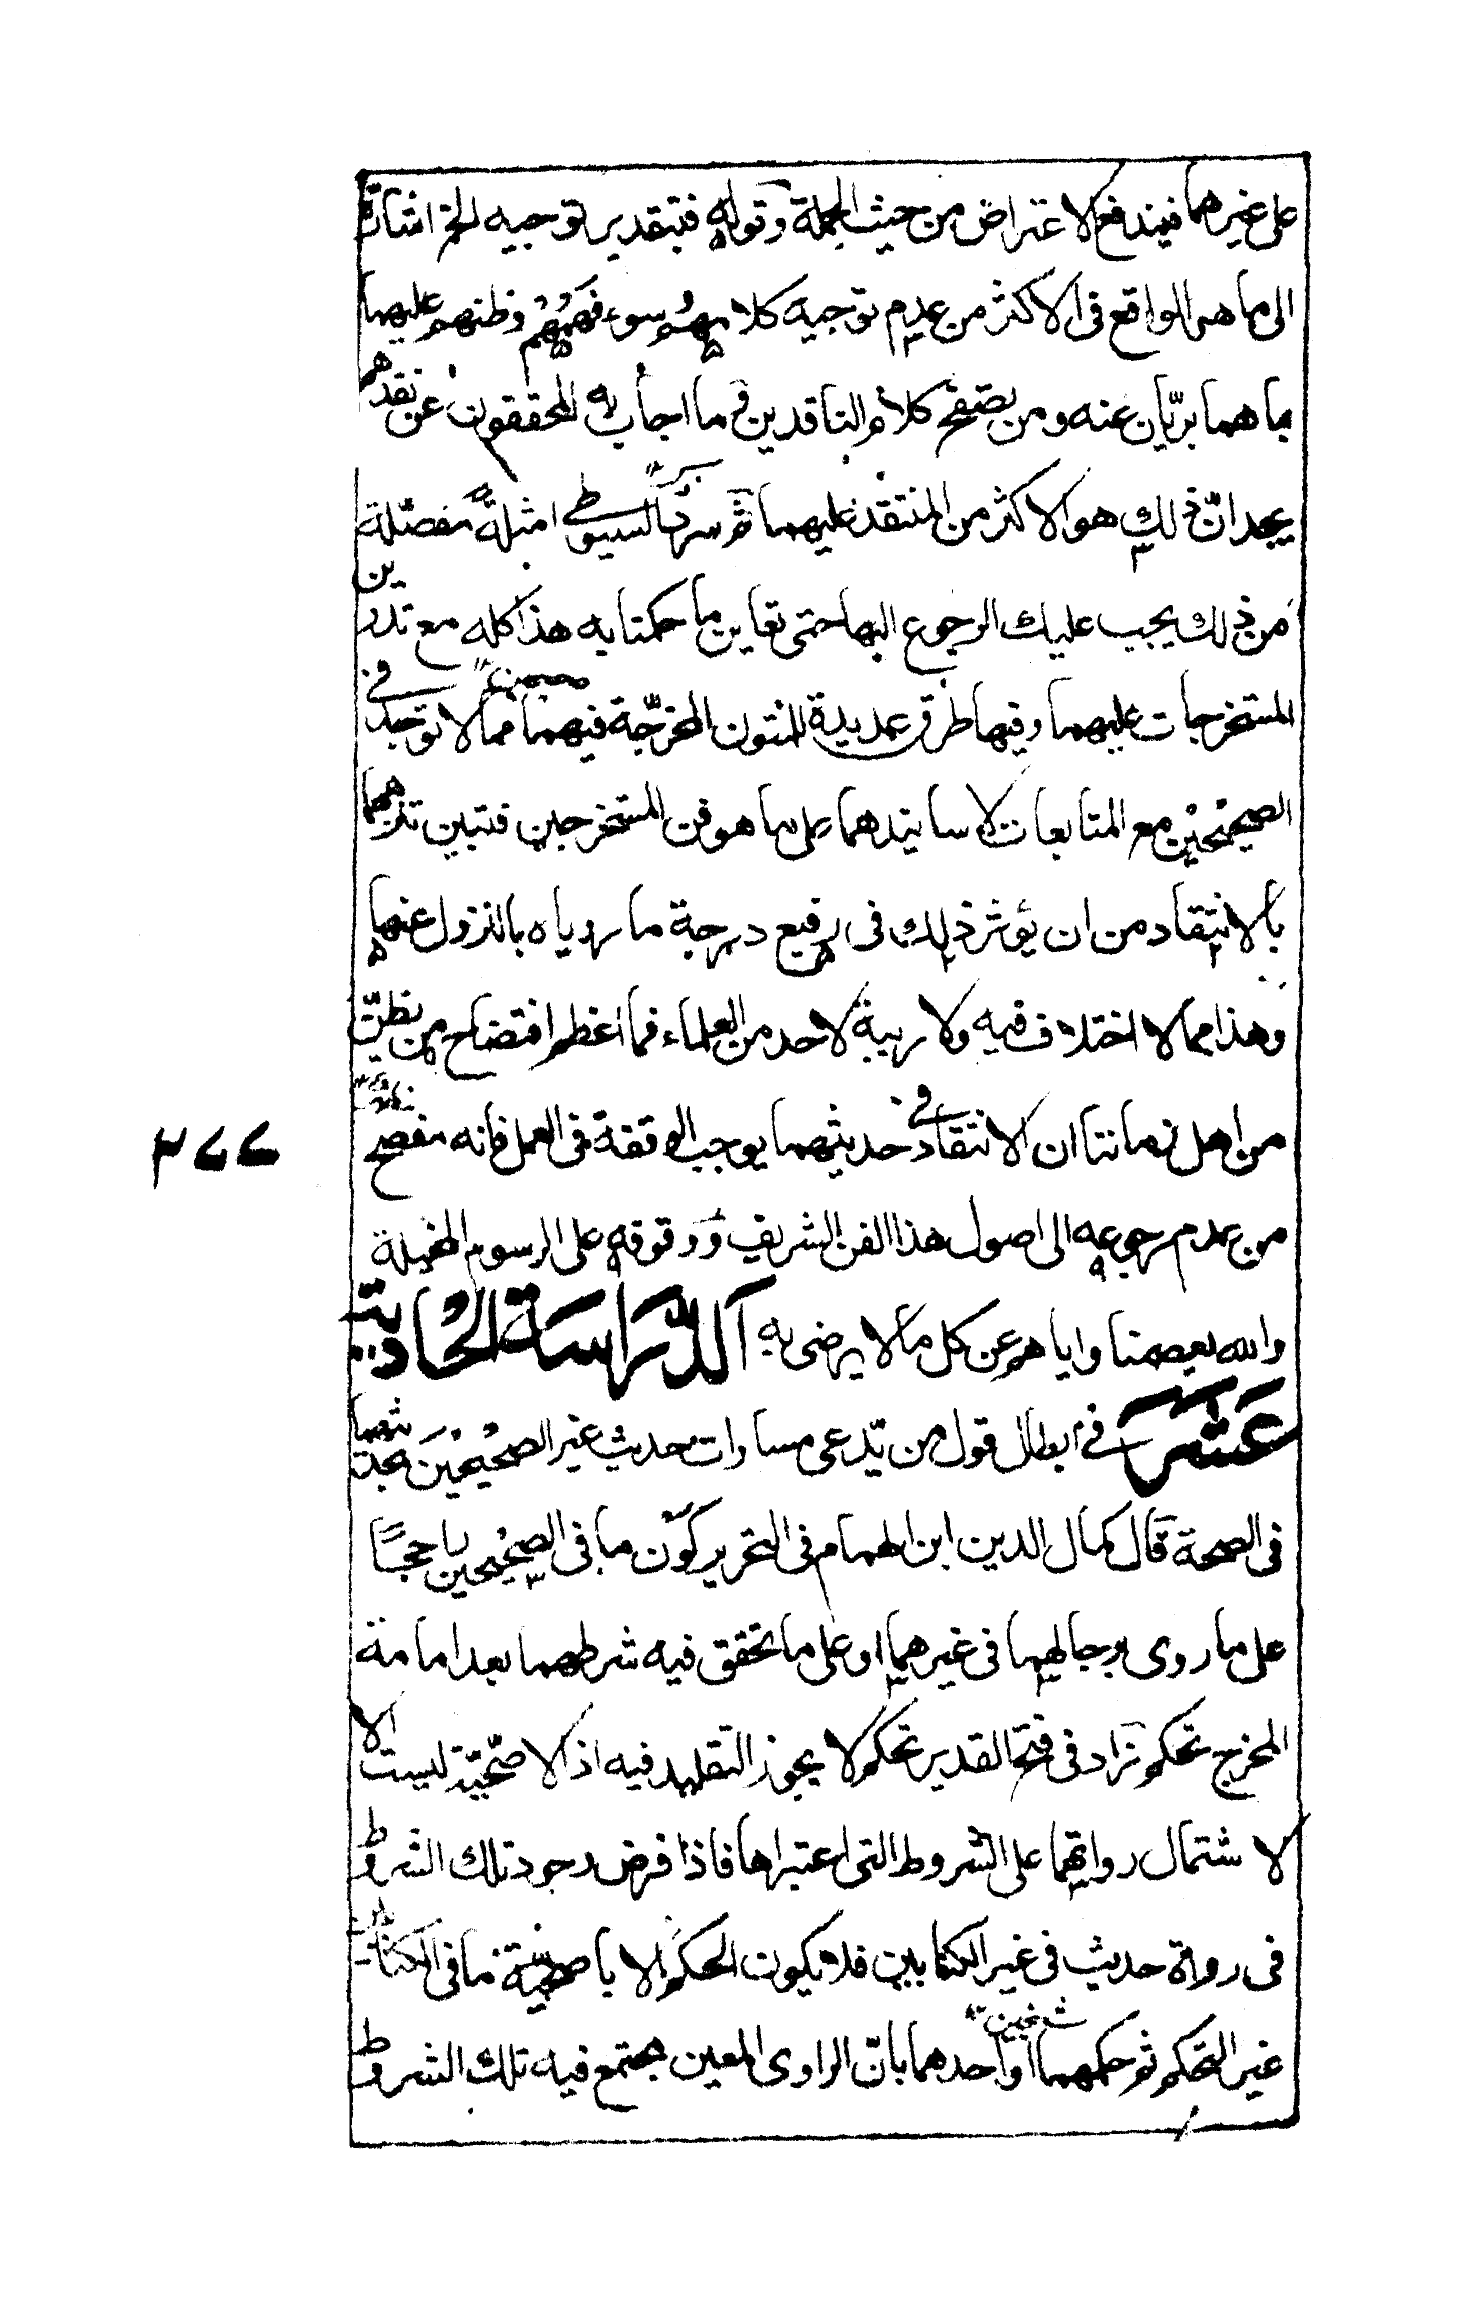 على غيرهما فيندفع الاعتراض من حيث الجملة وقوله فبتقدير توجيه الخ اشارة
الى ما هو الواقع فى الاكثر من عدم توجيه كلامهم وسوء فهمهم وظنهم عليهما
ما هما بريّان عنه ومن تصفح كلام الناقدين و ما اجاب به المحققون عن نقدهم
يجد انّ ذلك هو الاكثر من المنتقد عليهما وسرد السيوطي امثلةً مفصّلة
من ذلك يجب عليك الرجوع اليها حتى تعاين ما حكمنا به هذا كله مع تدوين
المستخرجات عليهما وفيها طرق عديدة للمتون المخرّجة فيهما مما لا توجد في
الصحيحين مع المتابعات لاسانيدهما على ما هو فن المستخرجين فتبين
بالانتقاد من ان يؤثر ذلك فى رفيع درجة ما روياه بالنزول عنها
وهذا مما لا اختلاف فيه ولا ريبة لاحد من العلماء فما اعظم افتضاح من يظنّ
من اهل زماننا ان الانتقاد في حديثهما يوجب الوقفة فى العمل فانه مفصح
من عدم رجوعه الى اصول هذا الفن الشريف ووقوفه على الرسوم المخيلة
والله يعصمنا واياهم عن كل ما لا يرضى به الدراسة الحادية
عشر في ابطال قول من يدّعى مساوات حديث غير الصحيحين بحديثهما
فى الصحة قال كمال الدين ابن الهمام فى التحرير كون ما فى الصحيحين راجحًا
على ما روى برجالهما فى غيرهما او على ما تحقق فيه شرطهما بعد امامة
المخرج تحكم وزاد فى فتح القدير تحكم لا يجوز التقليد فيه اذ الاصحّيّة ليست الا
لاشتمال رواتهما على الشروط التى اعتبراها فاذا فرض وجود تلك الشروط
فى رواة حديث فى غير الكتابين فلا يكون الحكم الا باصحيّة ما فى الكتابين
غير التحكم ثم حكمهما شيخين او احدهما بانّ الراوى المعين يجتمع فيه تلك الشروط
٣٧٧